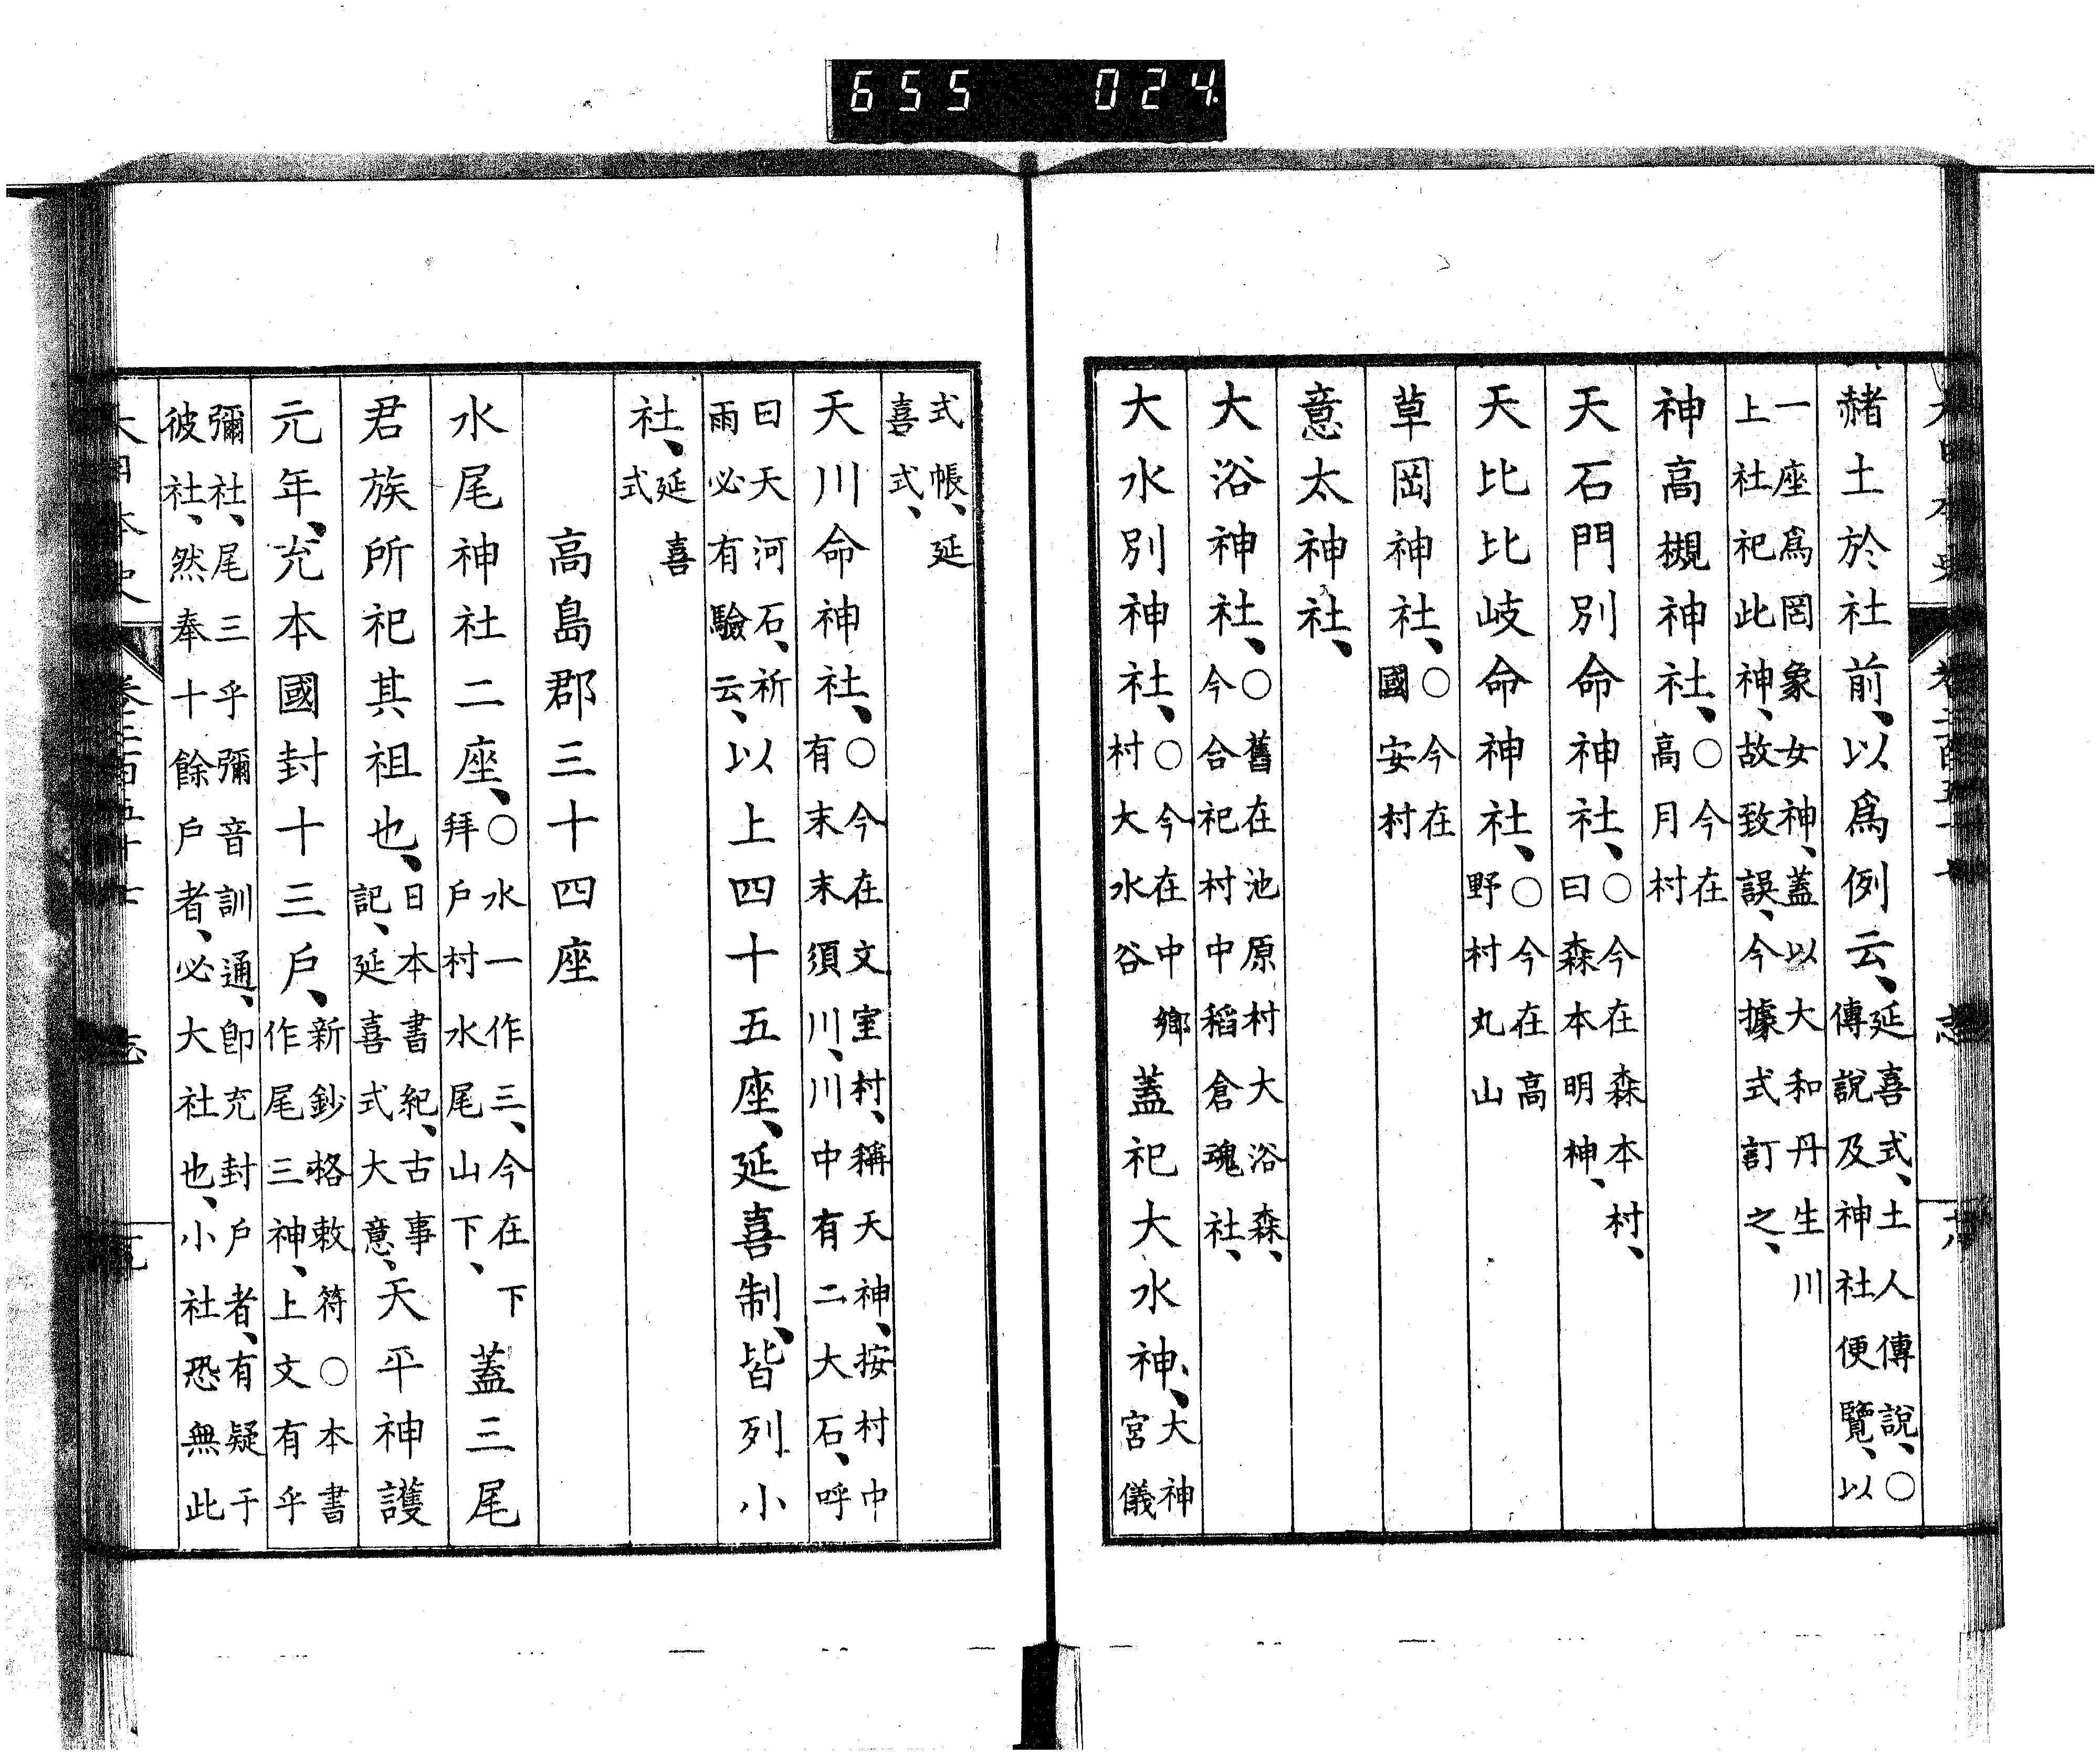 655 024
赭土於社前、以爲例云、延喜式、土人傳說、○
傳說及神社便覽、以
一座爲罔象女神、蓋以大和丹生川
上社祀此神、故致誤、今據式訂之、
神高槻神社、○今在
高月村
天石門別命神社、○今在森本村、
曰森本明神、
天比比岐命神社、○今在高
野村丸山
草岡神社、○今在
國安村
意太神社、
大浴神社、○舊在池原村大浴森、
今合祀村中稻倉魂社、
大水別神社、○今在中鄉
村大水谷
蓋祀大水神、大神
宮儀
式帳、延
喜式、
天川命神社、○今在文室村、稱天神、按村中
有末末須川、川中有二大石、呼
曰天河石、祈
雨必有驗云、
以上四十五座、延喜制、皆列小
社、延喜
式
高島郡三十四座
水尾神社二座、○水一作三、今在下
拜戶村水尾山下、
蓋三尾
君族所祀其祖也、日本書紀、古事
記、延喜式大意、
天平神護
元年、充本國封十三戶、新鈔格敕符○本書
作尾三神、上文有乎
彌社、尾三乎彌音訓通、卽充封戶者、有疑于
彼社、然奉十餘戶者、必大社也、小社恐無此